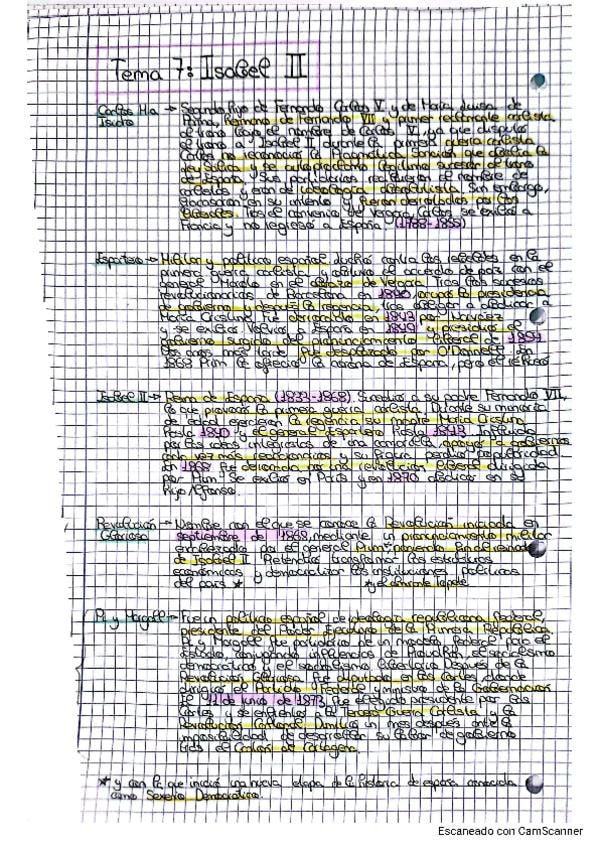 Tema 7: Isabel II
Carlos Mª → Segundo hijo de Fernando Carlos V y de María Luisa de
Isidro Parma, Hermano de Fernando VII y primer pretendiente carlista
al trono bajo el nombre de Carlos V, ya que disputó
el trono a Isabel II durante la primera guerra carlista.
Carlos no reconoció la Pragmática Sanción que
y se autoproclamó legítimo sucesor al trono
de España. Sus partidarios recibieron el nombre de
carlistas y eran de ideología absolutista. Sin embargo,
fracasaron en su intento y fueron derrotados por los
liberales. Tras el convenio de Vergara, Carlos se exilió a
Francia y no regresó a España (1788-1855)
Espartero → Militar y político español, luchó contra los carlistas en la
primera guerra carlista y obtuvo el acuerdo de paz con el
general Maroto en el abrazo de Vergara. Tras los sucesos
revolucionarios de Barcelona en 1840, ocupó la presidencia
de gobierno y después la regencia, tras obligar a abdicar a
María Cristina. Fue derrocado en 1843 por Narváez
y se exilió. Volvió a España en 1849 y presidió el
gobierno surgido del pronunciamiento liberal de 1854
Dos años más tarde fue desplazado por O'Donnell. En
1868 Prim le ofreció la corona de España, pero él rehusó
Isabel II → Reina de España (1833-1868). Sucedió a su padre Fernando VII,
lo que provocó la primera guerra carlista. Durante su minoría
de edad ejercieron la regencia su madre María Cristina
hasta 1840 y el general Espartero hasta 1843. Influida
por las ideas de una camarilla, apoyó a gobiernos
cada vez más reaccionarios y su figura perdió popularidad
En 1868 fue derrocada por una revolución liberal dirigida
por Prim. Se exilió en París y en 1870 abdicó en su
hijo Alfonso.
Revolución → Nombre con el que se conoce la Revolución iniciada en
Gloriosa septiembre de 1868, mediante un pronunciamiento militar
encabezado por el general Prim* poniendo fin al reinado
de Isabel II. Pretendía transformar las estructuras
económicas y democratizar las instituciones políticas
del país * *y el almirante Topete.
Pi y Margall → Fue un político español de ideología republicana federal,
presidente del Poder Ejecutivo de la Primera República.
Pi y Margall fue partidario de un modelo federal para el
Estado, conjugando influencias de Proudhon, el socialismo
democrático y el socialismo libertario. Después de la
Revolución Gloriosa fue diputado en las Cortes, donde
dirigió el Partido Federal y ministro de la Gobernación
El 11 de junio de 1873, fue elegido presidente por las
Cortes y se enfrentó a la Tercera Guerra Carlista y la
Revolución Cantonal. Dimitió un mes después ante la
imposibilidad de desarrollar su labor de gobierno
tras el Cantón de Cartagena.
* y con la que inició una nueva etapa de la historia de España conocida
como Sexenio Democrático.
Escaneado con CamScanner